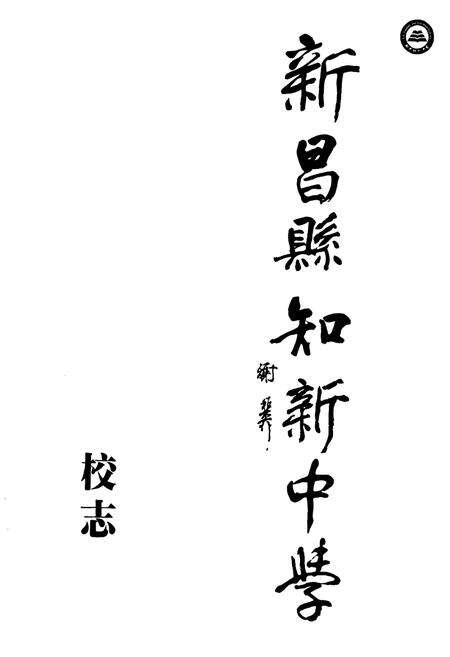 新昌縣知新中学
校志